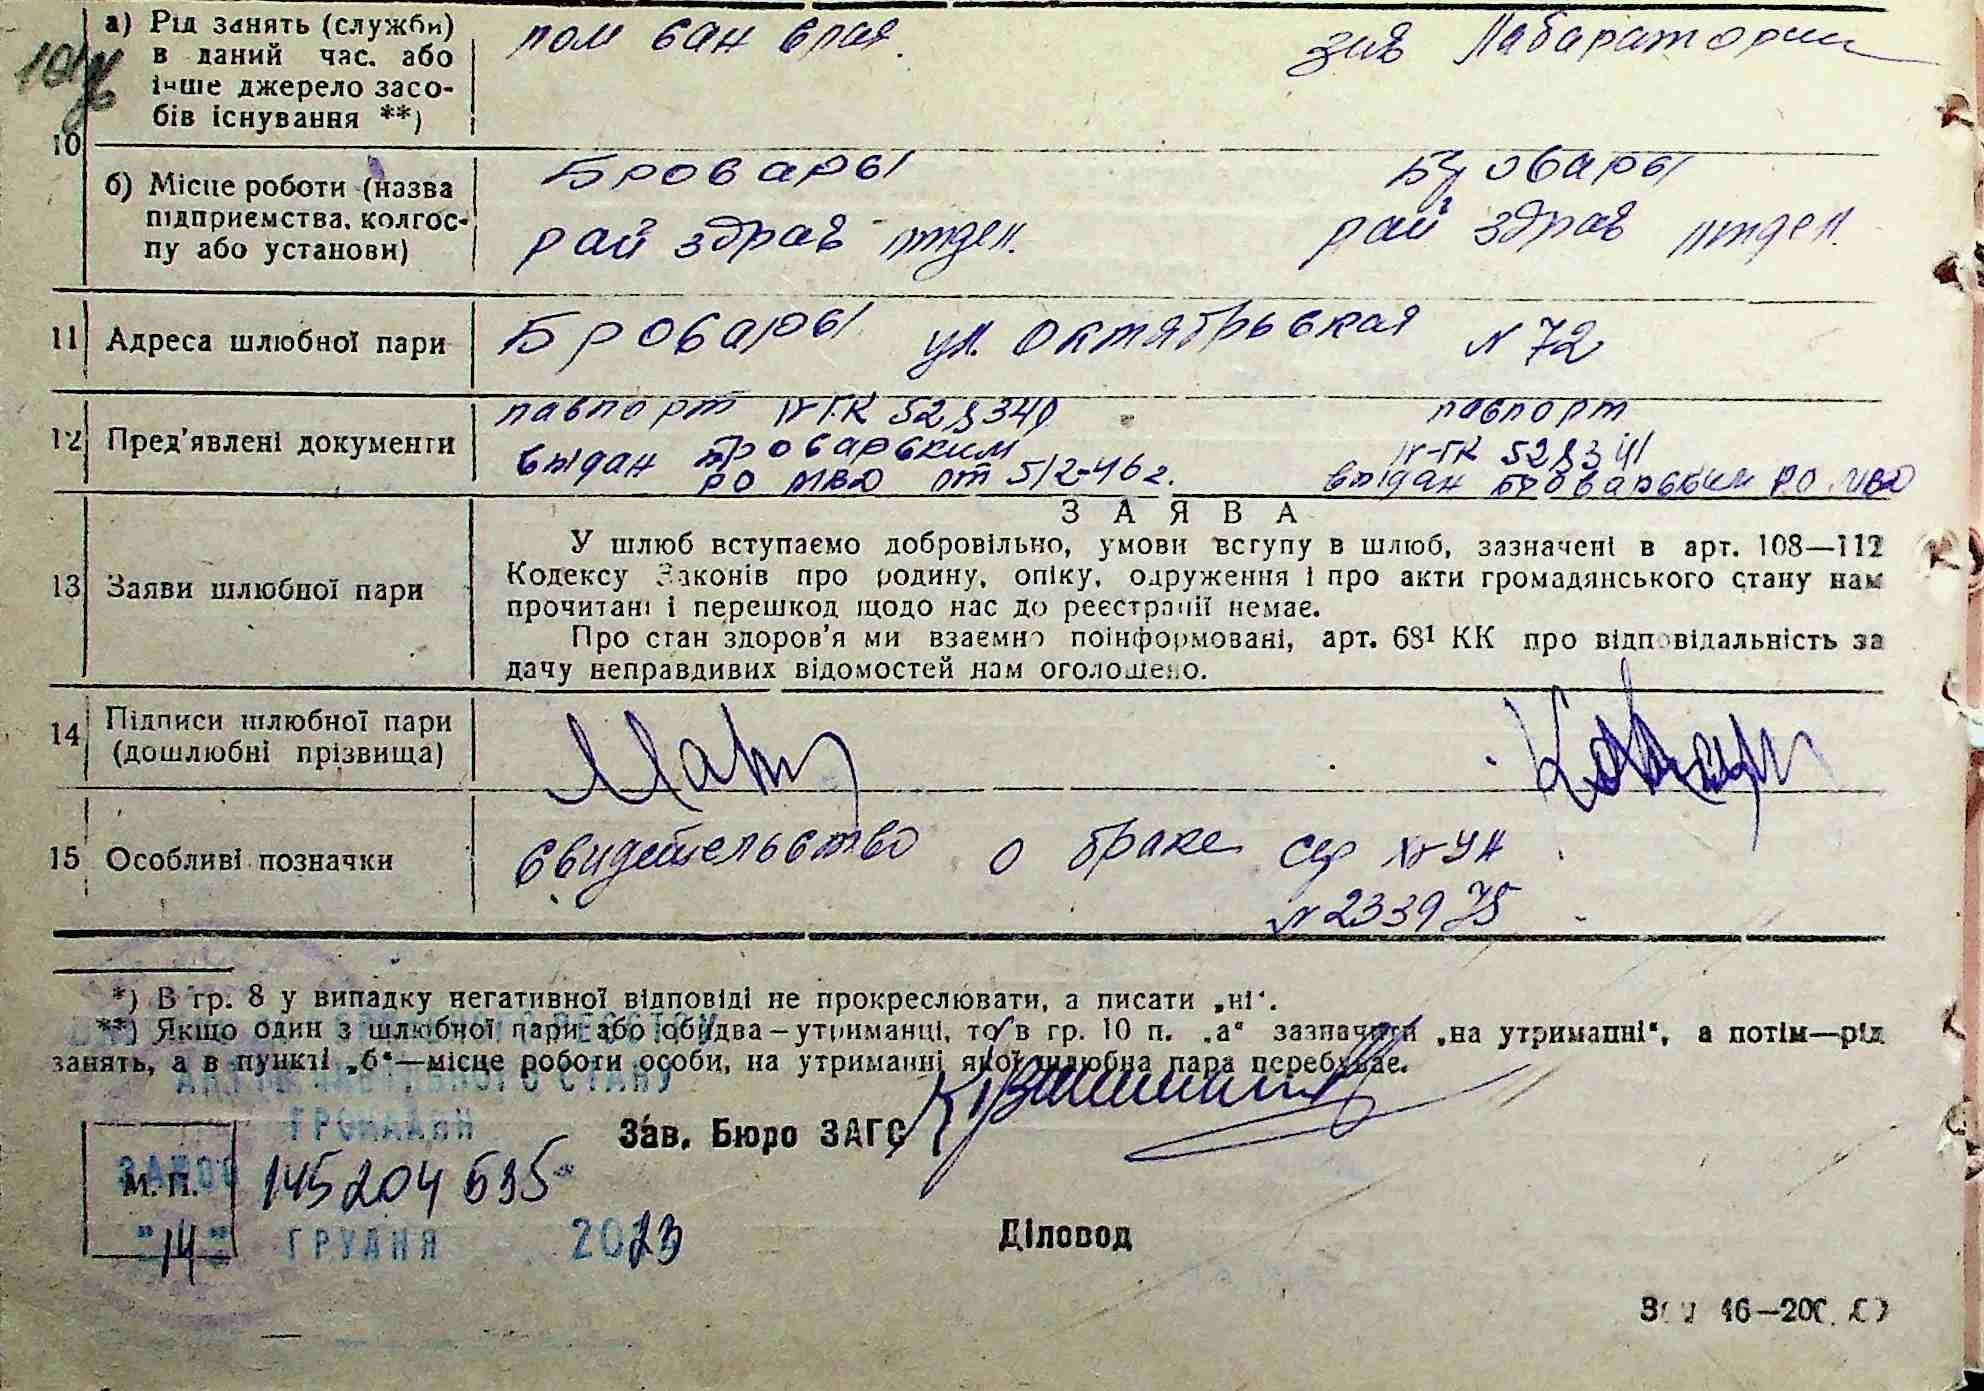 а) Рід занять (служби) пом сан врач. зав Лабаратории
в даний час. або
інше джерело засо-
бів існування **)
10
б) Місце роботи (назва Бровары Бровары
підприємства, колгос- рай здрав отдел. рай здрав отдел.
пу або установи)
11 Адреса шлюбної пари Бровары ул. Октябрьская N 72
12 Пред'явлені документи паспорт паспорт
выдан Броварским
РО МВД от выдан Броварским РО МВД
З А Я В А
13 Заяви шлюбної пари
У шлюб вступаємо добровільно, умови вступу в шлюб, зазначені в арт. 108—112
Кодексу Законів про родину, опіку, одруження і про акти громадянського стану нам
прочитані і перешкод щодо нас до реєстрації немає.
Про стан здоров'я ми взаємно поінформовані, арт. 68¹ КК про відповідальність за
дачу неправдивих відомостей нам оголошено.
14 Підписи шлюбної пари
(дошлюбні прізвища)
15 Особливі позначки свидетельство о браке
N 233975
*) В гр. 8 у випадку негативної відповіді не прокреслювати, а писати „ні".
**) Якщо один з шлюбної пари або обидва—утриманці, то в гр. 10 п. „а" зазначити „на утриманні", а потім—рід
занять, а в пункті „б"—місце роботи особи, на утриманні якої шлюбна пара перебуває.
ГРОМАДЯН
Зав. Бюро ЗАГС
М. П. 145204635
"14" ГРУДНЯ 2023
Діловод